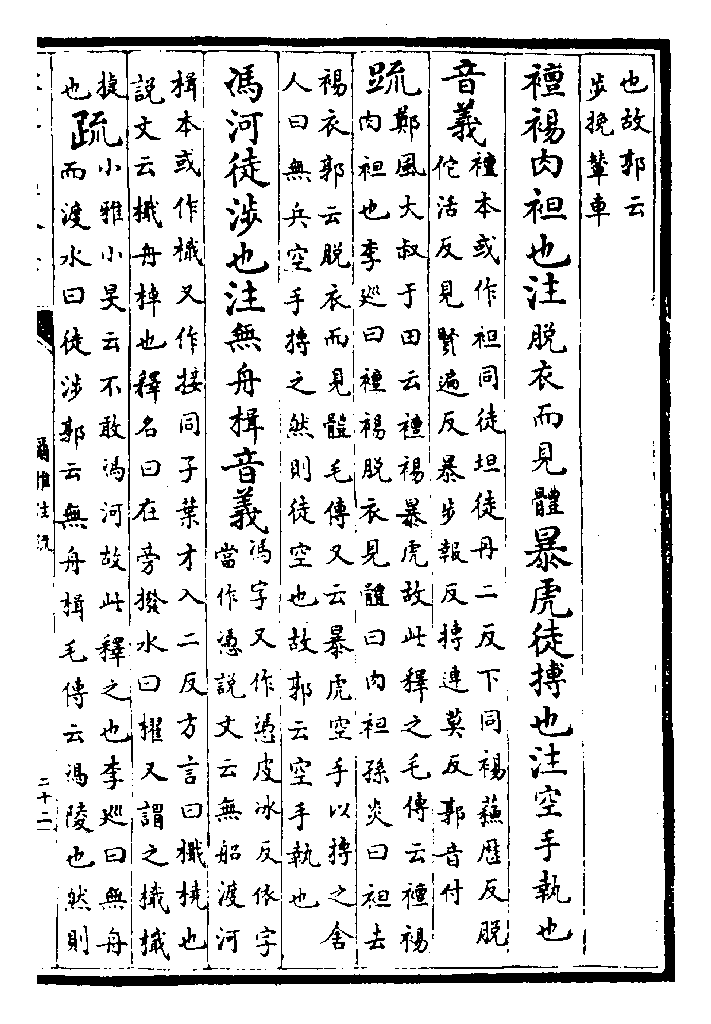 也故郭云
步挽輦車
襢裼肉袒也注脫衣而見體暴虎徒搏也注空手執也
音義
襢本或作袒同徒坦徒丹二反下同裼蘇歴反脫
佗活反見賢遍反暴步報反搏連莫反郭音付
疏
鄭風大叔于田云襢裼暴虎故此釋之毛傳云襢裼
肉袒也李廵曰襢裼脫衣見體曰肉袒孫炎曰袒去
裼衣郭云脫衣而見體毛傳又云暴虎空手以搏之舍
人曰無兵空手搏之然則徒空也故郭云空手執也
馮河徒涉也注無舟楫音義
馮字又作憑皮冰反依字
當作憑說文云無船渡河
楫本或作檝又作接同子葉才入二反方言曰檝橈也
說文云檝舟棹也釋名曰在旁撥水曰櫂又謂之檝檝
捷
也
疏
小雅小旻云不敢馮河故此釋之也李廵曰無舟
而渡水曰徒涉郭云無舟楫毛傳云馮陵也然則
爾雅注疏
二十二